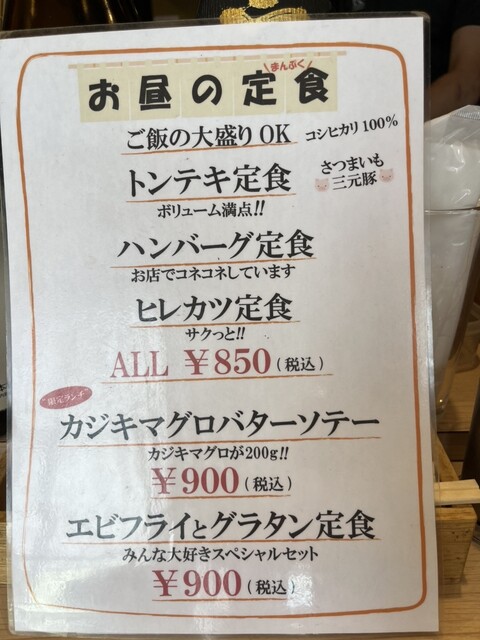 まんぷく
お昼の定食
ご飯の大盛りOK コシヒカリ100%
トンテキ定食 さつまいも
三元豚
ボリューム満点!!
ハンバーグ定食
お店でコネコネしています
ヒレカツ定食
サクっと!!
ALL ¥850(税込)
限定ランチ
カジキマグロバターソテー
カジキマグロが200g!!
¥900(税込)
エビフライとグラタン定食
みんな大好きスペシャルセット
¥900(税込)